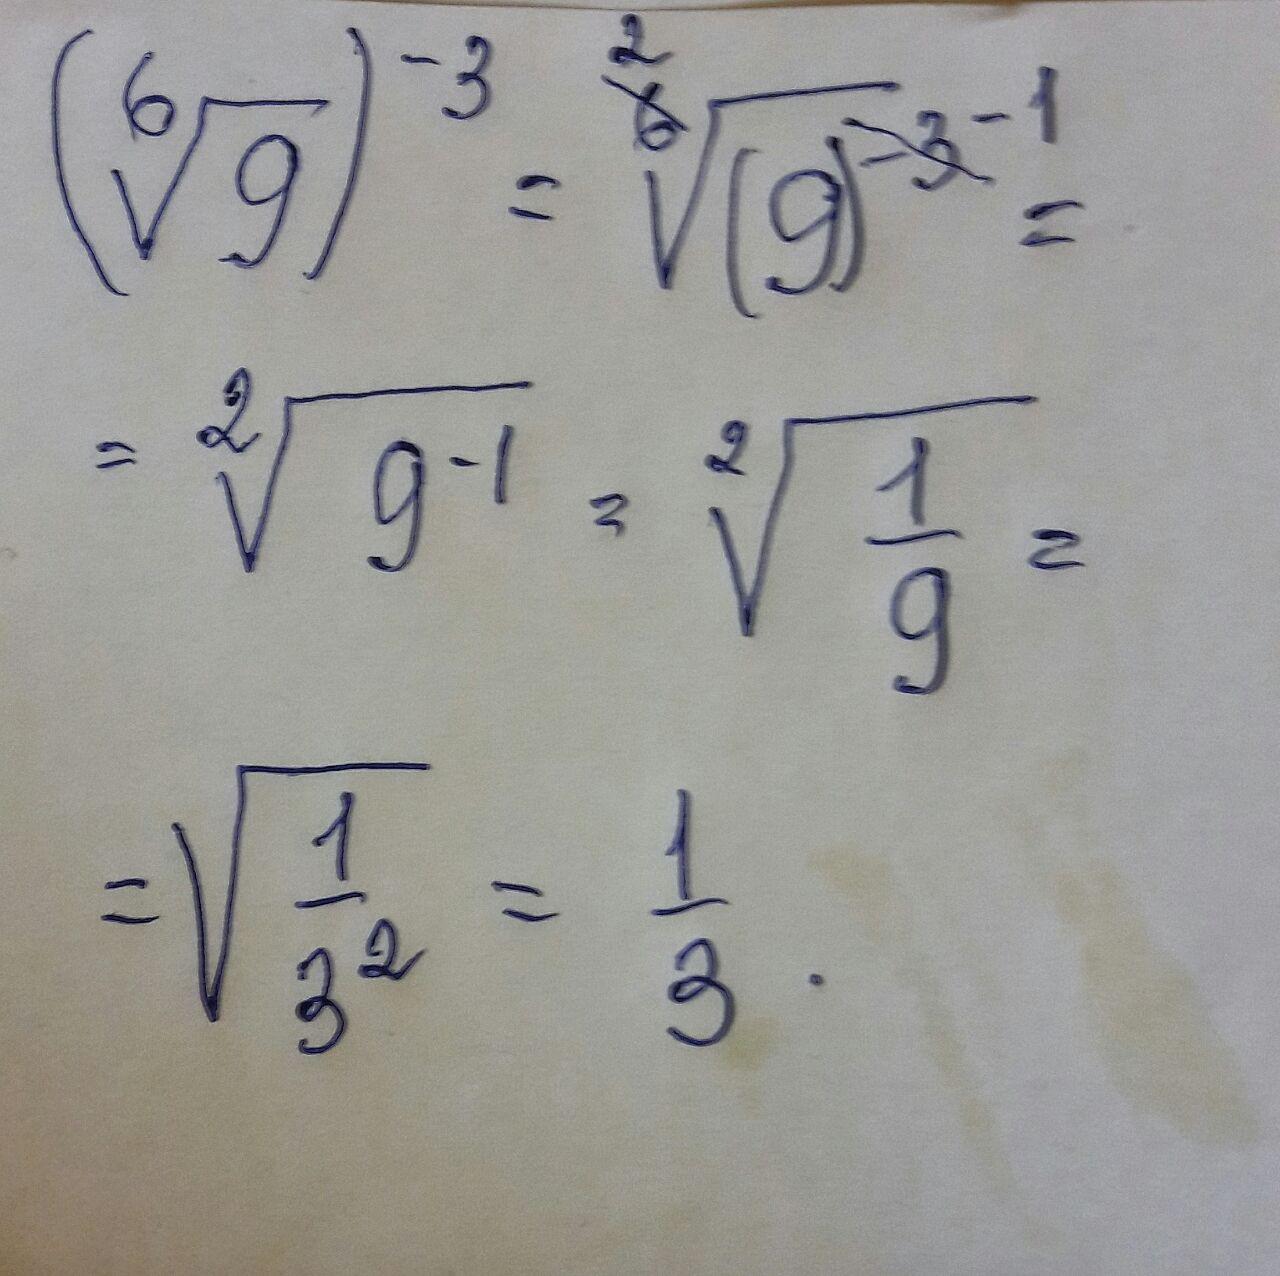 (⁶√9)⁻³ = ⁶√(9)⁻³ 2 -1 =
= ²√9⁻¹ = ²√1/9 =
= √1/3² = 1/3.